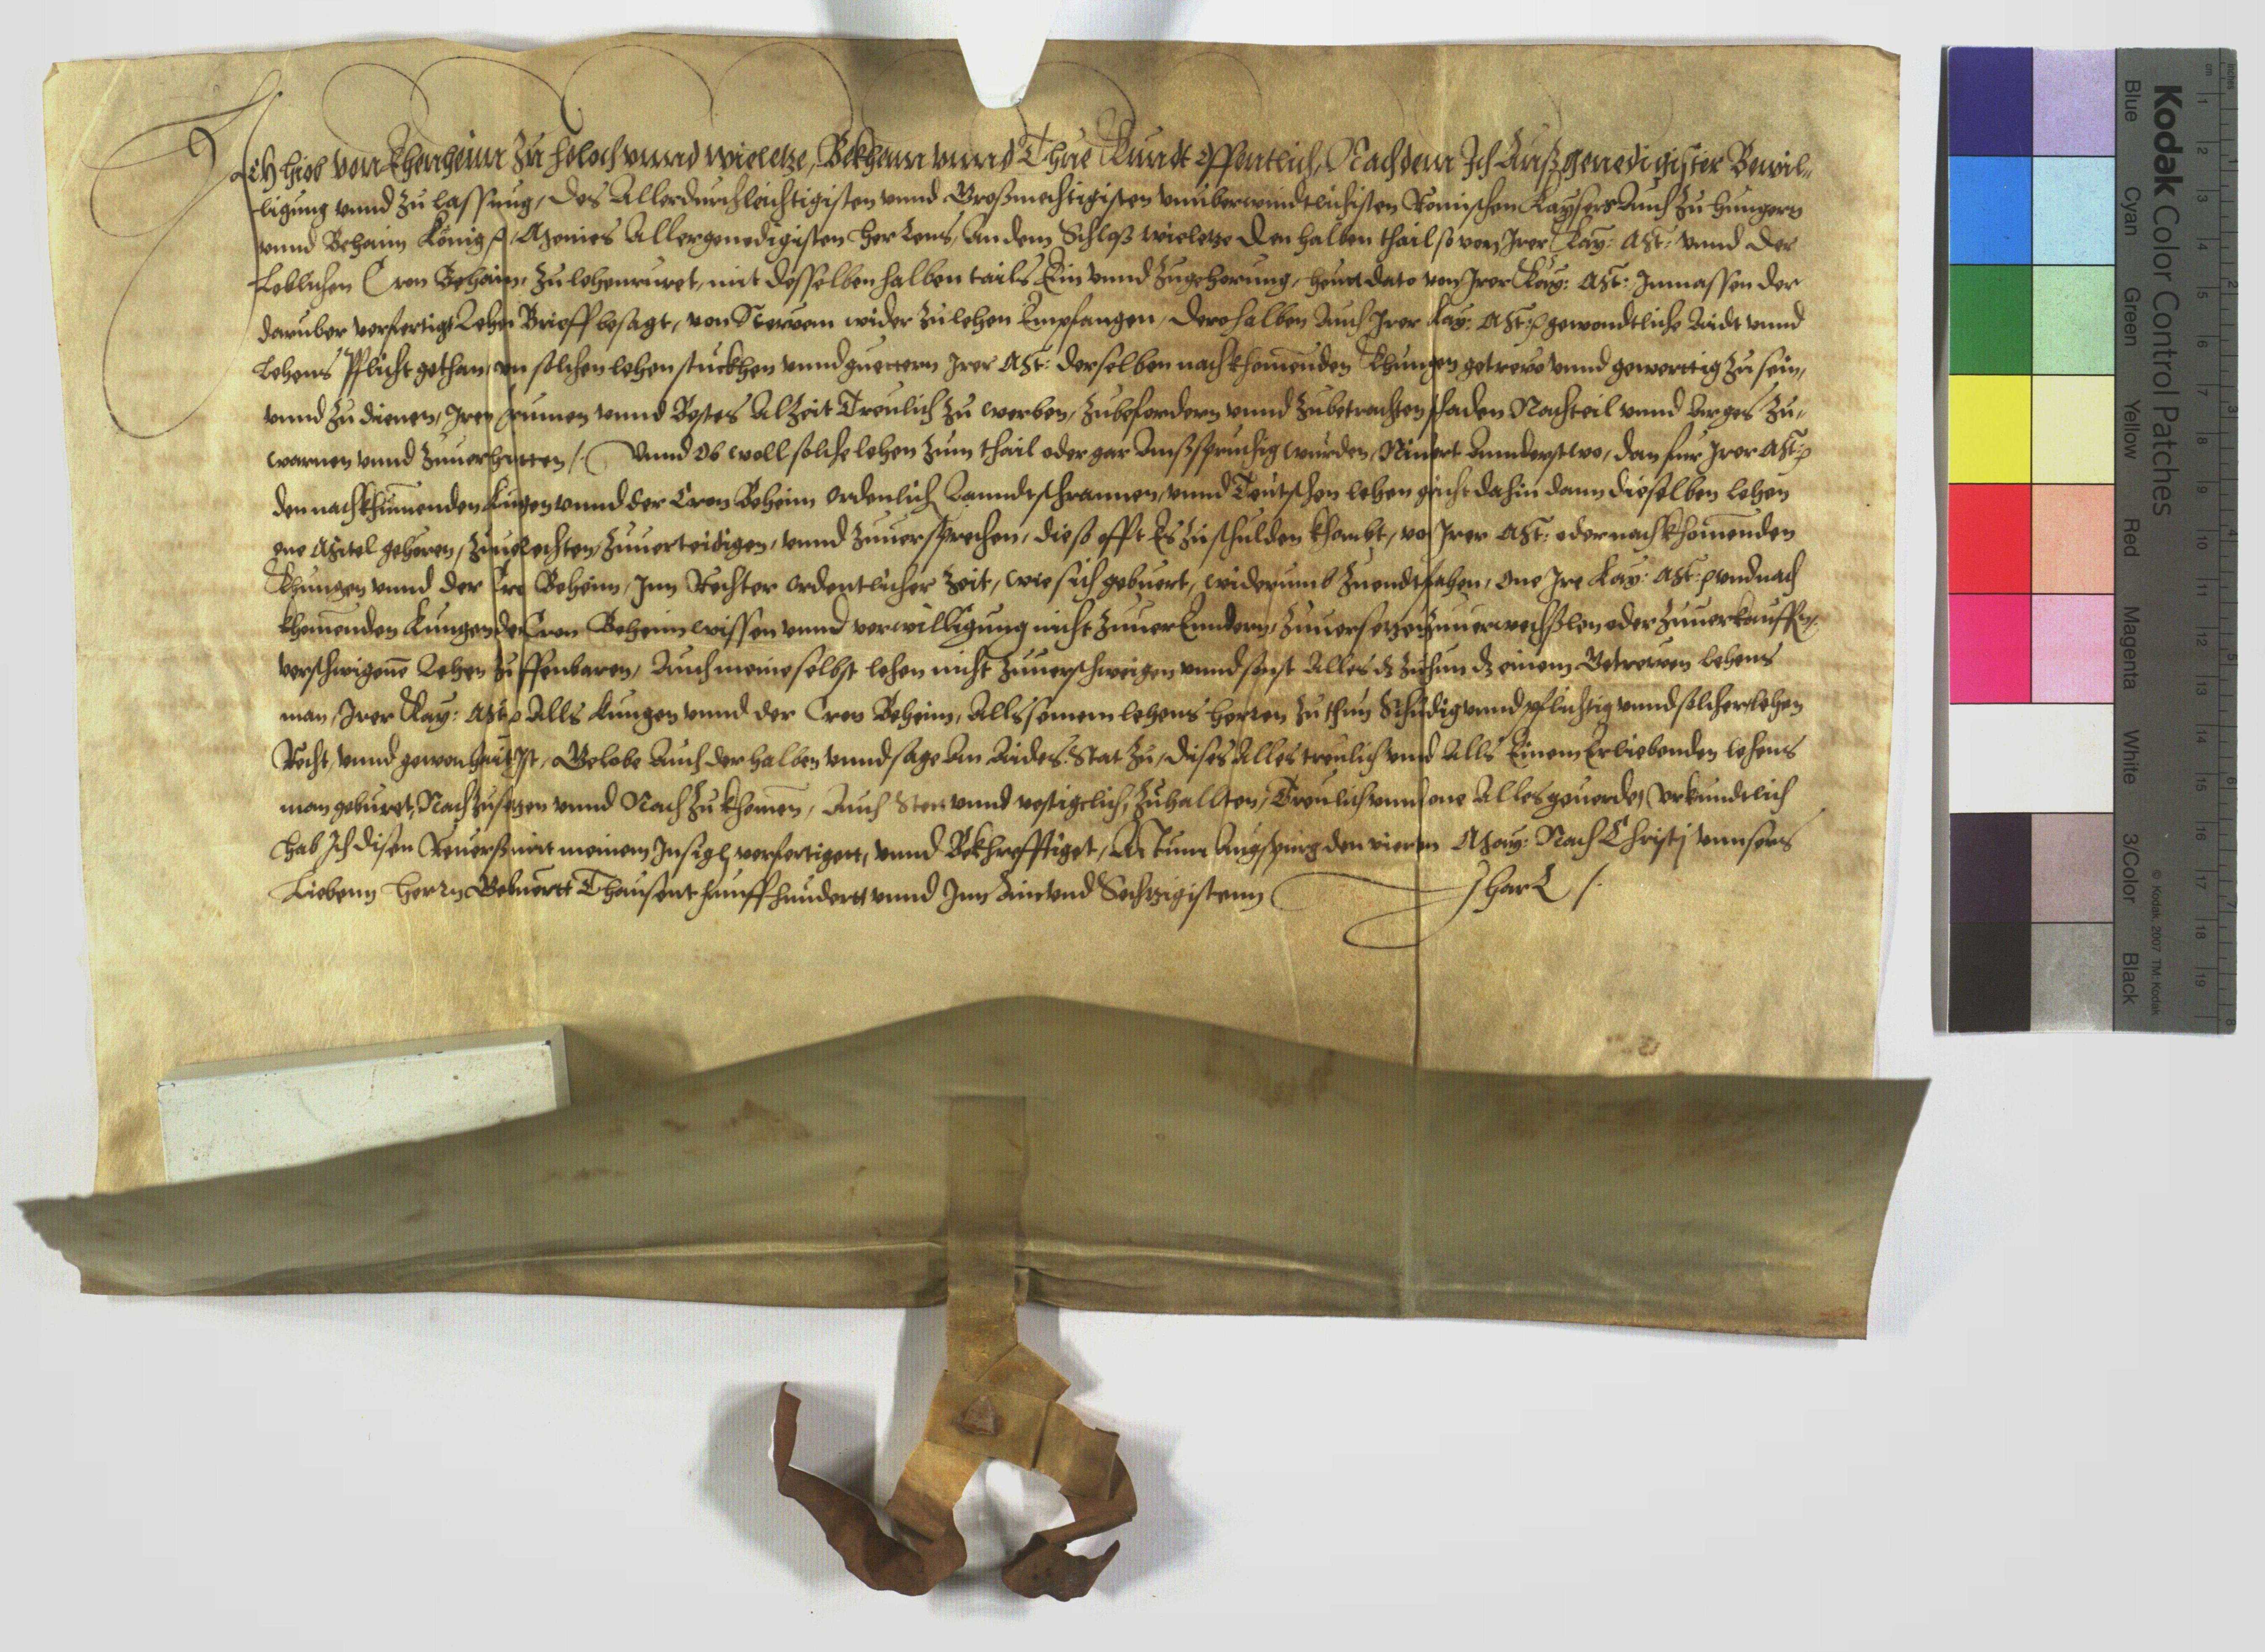 Ich Hiob von Ehenheim zu Holoch unnd Wieletze, Bekhenn unnd Thue Kundt Offentlich, Nachdem Ich Auß genedigister Bewil-
ligung unnd Zulassung, des Allerdurchleichtigisten unnd Großmechtigisten unüberwindtlichisten Romischen Kaysers Auch zu Hungern
unnd Behaim König p, Meines Allergenedigisten Herrens, An dem Schloß Wieletze den halben thail so von Irer Kay: Mt: unnd der
Loblichen Cron Behaim, zu lehen ruret, mit desselben halben tails Ein unnd Zugehorung, heut dato von Irer Kay: Mt: Inmassen der
daruber verfertigt Lehn Brieff besagt, von Newem wider zu lehen Empfangen, derohalben Auch Irer Kay: Mt: p gewondtliche Aidt unnd
Lehens Pflicht gethan, von solchen lehen stuckhen unnd guettern Irer Mt: derselben nachkhomenden Khungen getrew unnd gewerttig zu sein,
unnd zu dienen, Iren frumen unnd Bestes Alzeit Treulich zu werben, zubefordern unnd zubetrachten, schaden Nachteil unnd Arges zu-
warnen unnd zuuerhütten / Unnd Ob woll solche lehen zum thail oder gar Ansprüchig wurden, Ninert Annderstwo, dan fur Irer Mt: p
den nachkhumenden Kungen unnd der Cron Beheim Ordenlich Lanndtschrannen, unnd Teutschen lehen gericht dahin dann dieselben lehen
one Mitel gehoren, zuuerfechten, zuuerteidigen, unnd zuuersprechen, die so offt Es zuschulden khombt, von Irer Mt: oder nachkhomenden
Khungen unnd der Cro Beheim, Inn Rechter Ordentlicher Zeit, wie sich gebuert, widerumb zuendtpfahen, One Ire Kay: Mt: p und nach
khomenden Kungen der Cron Beheim wissen unnd verwilligung nicht zuuerEnndern, zuuersetzen zuuerwechßlen oder zuuerkauffen,
verschwigene Lehen zuoffenbaren, Auch meine selbst lehen nicht zuuerschweigen unnd sonst Alles dz zuthun dz einem Getrewen lehens
man, Irer Kay: Mt: p Alls Kungen unnd der Cron Beheim, Alls seinem lehens herren zu thun Schuldig unnd pflichtig unnd solcher lehen
Recht, unnd gewonhait Ist, Gelobe Auch derhalben unnd sage An Aides Stat zu, dises Alles treulich unnd Alls Einem Erliebenden lehens
man geburet, Nachzusetzen unnd Nachzukhomen, Auch Stett unnd vestigclich, zuhallten, Treulich unnd one Alles geuerde, Urkundtlich
Hab Ich disen Reuerß mit meinem Insigl verfertigett, unnd Bekhrefftiget, Actum Augspurg den vierten May: Nach Christj unnsers
Liebenn Herrn Geburtt Thausent funffhundertt unnd Im Ain und Sechzigistenn Jhar /.
Kodak Color Control Patches
Blue Cyan Green Yellow Red Magenta White 3/Color Black
© Kodak, 2007 TM: Kodak